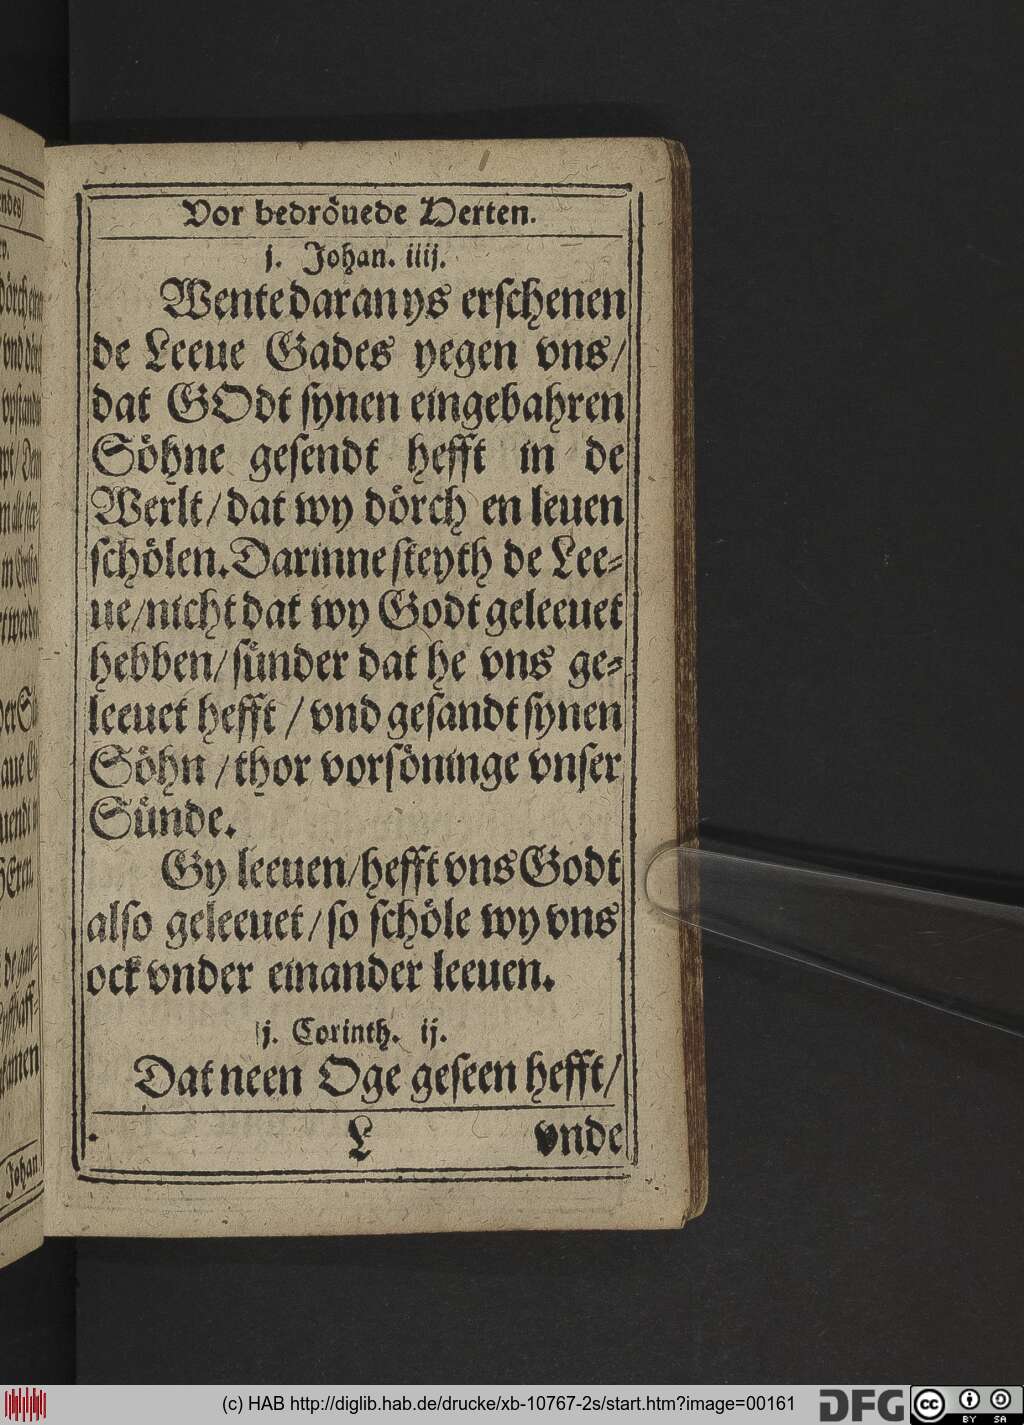 Vor bedröuede Herten.
j. Johan. iiij.
Wente daran ys erschenen
de Leeue Gades yegen vns/
dat GOdt synen eingebahren
Söhne gesendt hefft in de
Werlt/ dat wy dörch en leuen
schölen. Darinne steyth de Lee-
ue/ nicht dat wy Godt geleeuet
hebben/ sünder dat he vns ge-
leeuet hefft / vnd gesandt synen
Söhn / thor vorsöninge vnser
Sünde.
Gy leeuen/ hefft vns Godt
also geleeuet/ so schöle wy vns
ock vnder einander leeuen.
j. Corinth. ij.
Dat neen Oge geseen hefft/
L vnde
Johan
(c) HAB http://diglib.hab.de/drucke/xb-10767-2s/start.htm?image=00161
DFG
cc BY SA